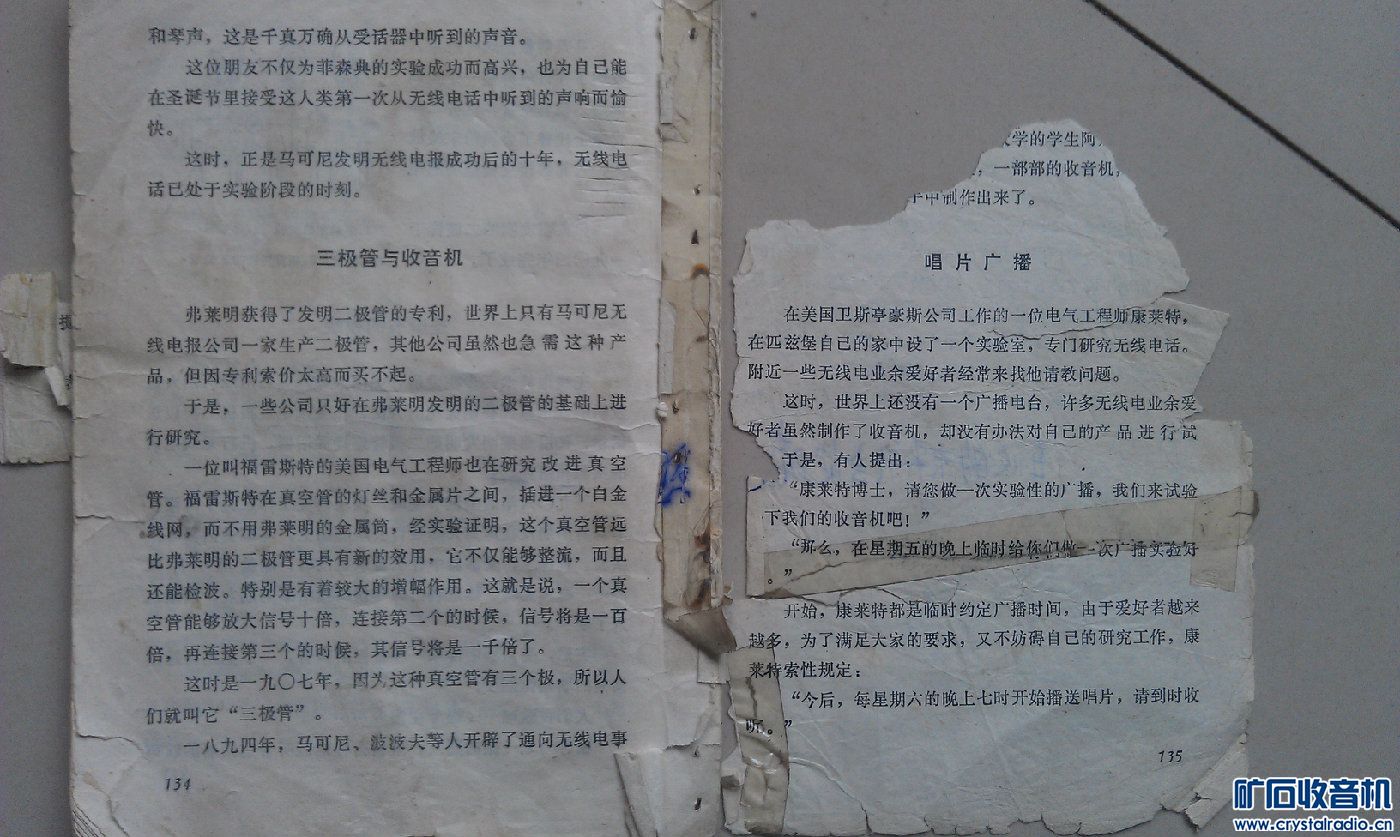 和琴声，这是千真万确从受话器中听到的声音。
这位朋友不仅为菲森典的实验成功而高兴，也为自己能
在圣诞节里接受这人类第一次从无线电话中听到的声响而愉
快。
这时，正是马可尼发明无线电报成功后的十年，无线电
话已处于实验阶段的时刻。
三极管与收音机
弗莱明获得了发明二极管的专利，世界上只有马可尼无
线电报公司一家生产二极管，其他公司虽然也急需这种产
品，但因专利索价太高而买不起。
于是，一些公司只好在弗莱明发明的二极管的基础上进
行研究。
一位叫福雷斯特的美国电气工程师也在研究改进真空
管。福雷斯特在真空管的灯丝和金属片之间，插进一个白金
线网，而不用弗莱明的金属筒，经实验证明，这个真空管远
比弗莱明的二极管更具有新的效用，它不仅能够整流，而且
还能检波。特别是有着较大的增幅作用。这就是说，一个真
空管能够放大信号十倍，连接第二个的时候，信号将是一百
倍，再连接第三个的时候，其信号将是一千倍了。
这时是一九〇七年，因为这种真空管有三个极，所以人
们就叫它“三极管”。
一八九四年，马可尼、波波夫等人开辟了通向无线电事
134
学的学生阿
，一部部的收音机，
手中制作出来了。
唱片广播
在美国卫斯亭豪斯公司工作的一位电气工程师康莱特，
在匹兹堡自己的家中设了一个实验室，专门研究无线电话。
附近一些无线电业余爱好者经常来找他请教问题。
这时，世界上还没有一个广播电台，许多无线电业余爱
好者虽然制作了收音机，却没有办法对自己的产品进行试
于是，有人提出：
“康莱特博士，请您做一次实验性的广播，我们来试验
下我们的收音机吧！”
“那么，在星期五的晚上临时给你们做一次广播实验好
。”
开始，康莱特都是临时约定广播时间，由于爱好者越来
越多，为了满足大家的要求，又不妨碍自己的研究工作，康
莱特索性规定：
“今后，每星期六的晚上七时开始播送唱片，请到时收
听。”
135
矿石收音机
www.crystalradio.cn